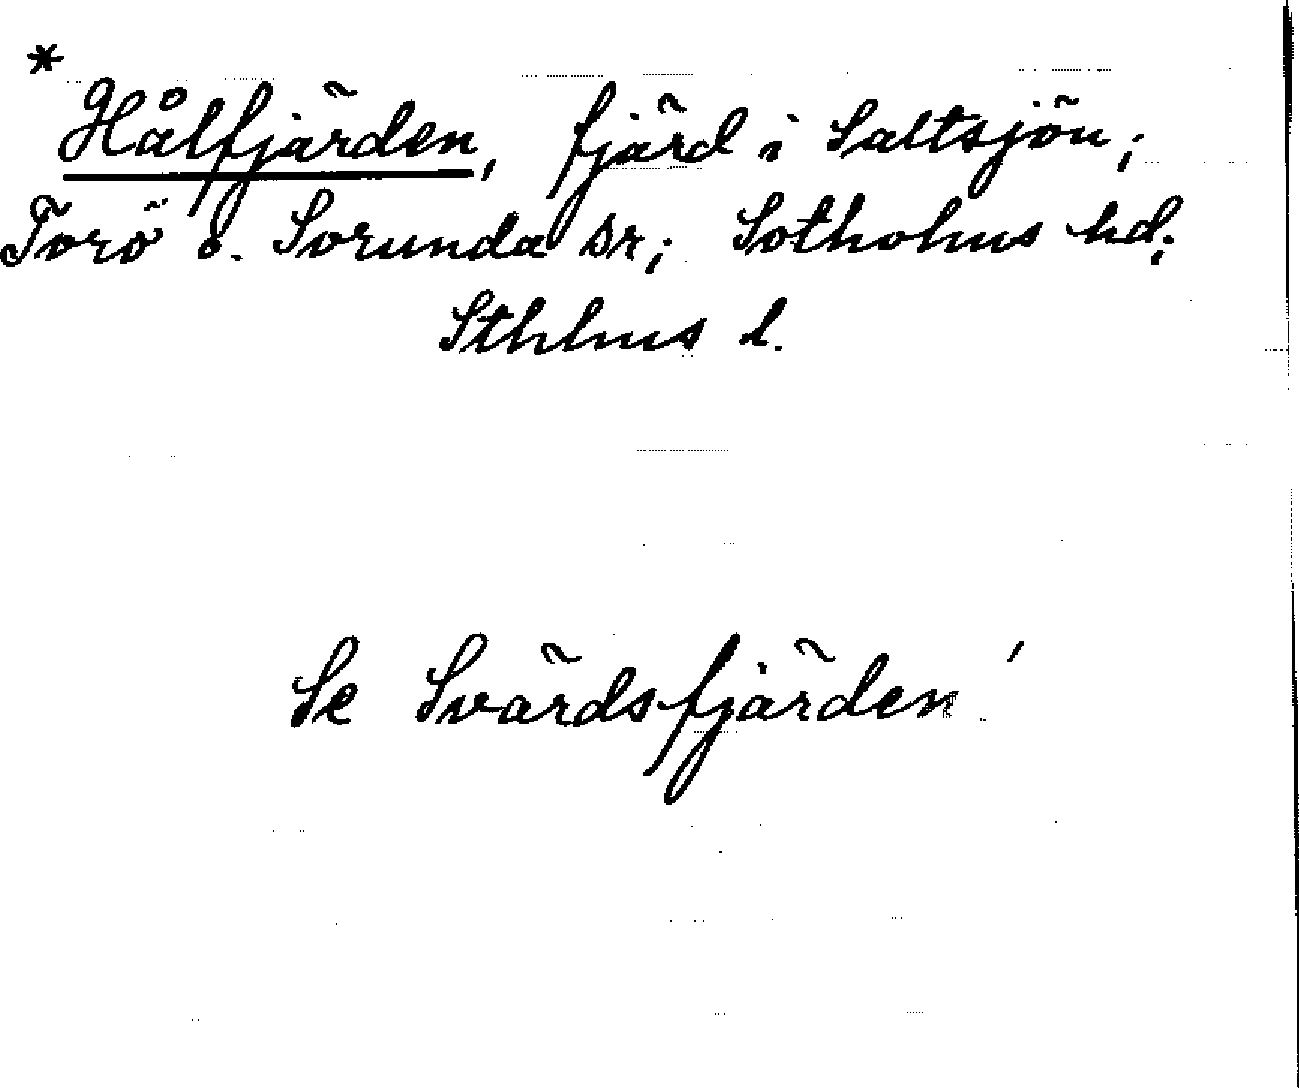 * Hålfjärden, fjärd i Saltsjön;
Torö o. Sorunda sr; Sotholms hd;
Sthlms l.
Se Svärdsfjärden!